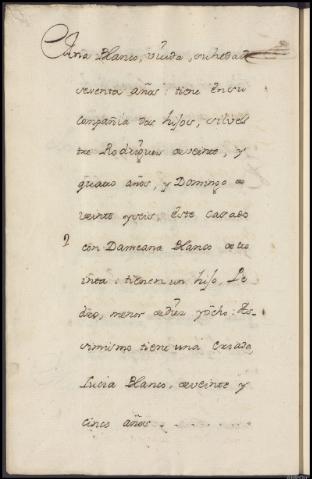 Maria Blanco, viuda, su hedad
sesenta años: tiene en su
compañia dos hijos, silves
tre Rodrigues de veinte, y
quatro años, y Domingo de
veinte y seis, este casado
2 con Dameana Blanco de tre
inta: tienen un hijo, Pe
dro, menor de diez y ocho: As-
simismo tiene una Criada,
Lucia Blanco, de veinte y
cinco años